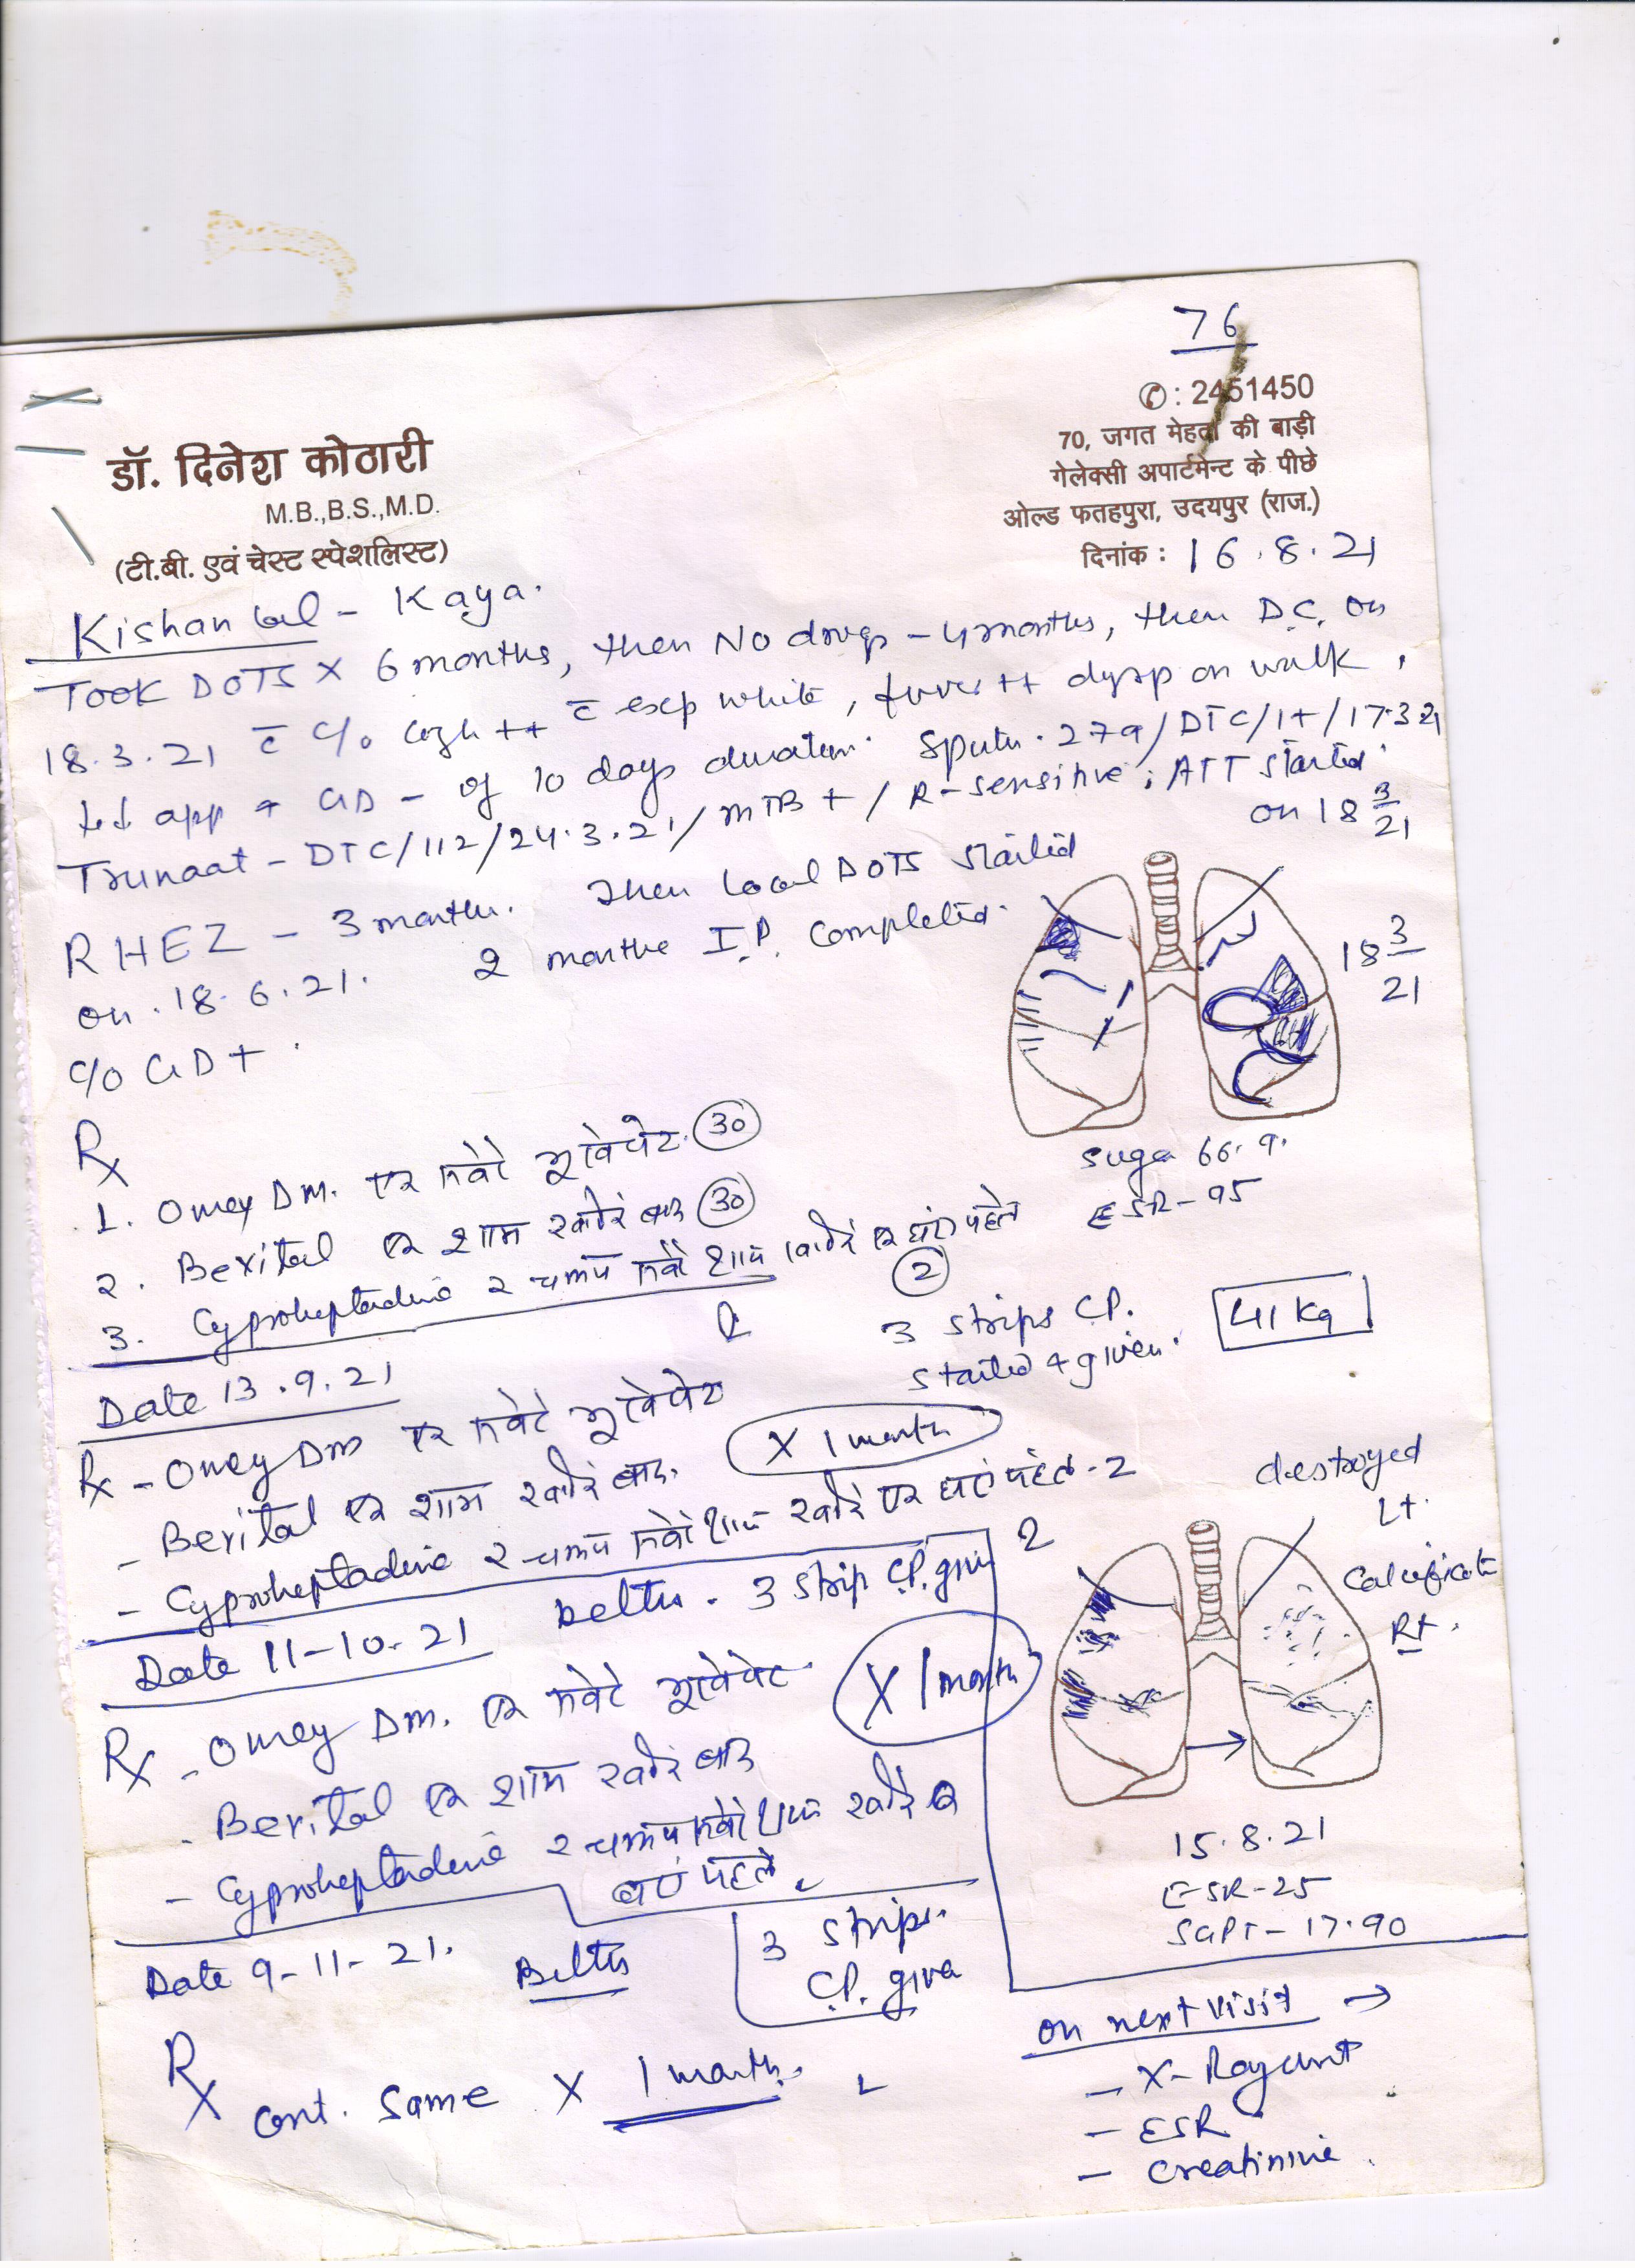 76
✆: 2451450
डॉ. दिनेश कोठारी
M.B.,B.S.,M.D.
(टी.बी. एवं चेस्ट स्पेशलिस्ट)
70, जगत मेहता की बाड़ी
गेलेक्सी अपार्टमेन्ट के पीछे
ओल्ड फतहपुरा, उदयपुर (राज.)
दिनांक : 16.8.21
Kishan Lal - Kaya.
Took DOTS X 6 months, then No drugs - 4 months, then D.C. on
18.3.21 c̄ c/o cough ++ c̄ exp white, fever ++ dysp on walk,
app + GD - of 10 days duration. Sputu. 279/DTC/1+/17.3.21
Trunaat - DTC/112/24.3.21/MTB+/R-sensitive; ATT started
on 18 3/21
RHEZ - 3 months. Then local DOTS started
on 18.6.21. 2 months I.P. Completed.
c/o GD+.
18 3/21
Suga 66.9.
ESR - 95
Rx
1. Omey DM. एक सवेरे भूखे पेट. 30
2. Bexital एक शाम खाने के बाद 30
3. Cyproheptadine 2 चम्मच सवेरे शाम खाने के एक घंटे पहले
2
3 strips C.P.
started & given.
41 Kg
Date 13.9.21
Rx - Omey DM एक सवेरे भूखे पेट
- Bexital एक शाम खाने के बाद.
X 1 month
- Cyproheptadine 2 चम्मच सवेरे शाम खाने के एक घंटे पहले - 2
destroyed
Lt.
Calcificate
Rt.
Date 11-10-21 Better. 3 strip C.P. given
Rx - Omey DM. एक सवेरे भूखे पेट
X 1 month
- Bexital एक शाम खाने के बाद
- Cyproheptadine 2 चम्मच सवेरे शाम खाने के एक
घंटे पहले
15.8.21
ESR-25
SGPT - 17.90
Date 9-11-21. Better
3 strips.
C.P. given
Rx
Cont. Same X 1 month.
on next visit →
- X-Ray chest
- ESR
- Creatinine.